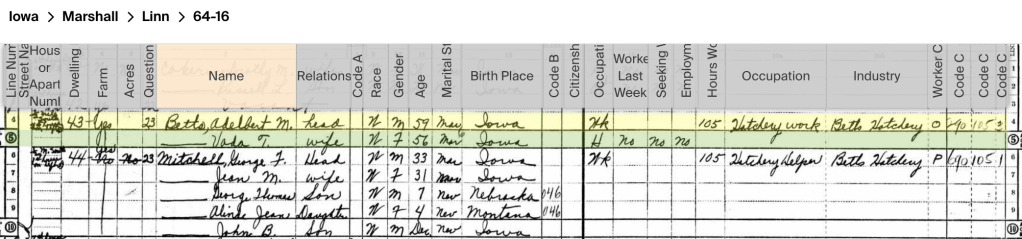 Iowa > Marshall > Linn > 64-16
Line Num Street Na Hous or Apart Numl Dwelling Farm Acres Question Name Relations Code A Race Gender Age Marital St Birth Place Code B Citizensh Occupati Worke Last Week Seeking V Employm Hours Wo Occupation Industry Worker C Code C Code C Code C
4 43 yes 23 Betts, Adelbert M. head W M 59 Mar Iowa Wk 105 Hatchery work Betts Hatchery O 4
5 Vada T. wife W F 56 Mar Iowa H No No No 5
6 44 No 23 Mitchell, George F. Head W M 33 Mar Iowa Wk 105 Hatchery Helper Betts Hatchery P 690 105 1 6
7 Jean M. wife W F 31 Mar Iowa 7
8 Georg Thomas Son W M 7 Nev Nebraska 046 8
9 Jean Daught W F 4 Nev Montana 046 9
10 John B. Son W M Dec Nev Iowa 10